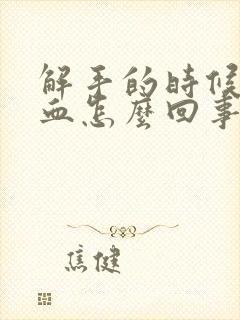 解手的時候
血怎麼回事
焦健